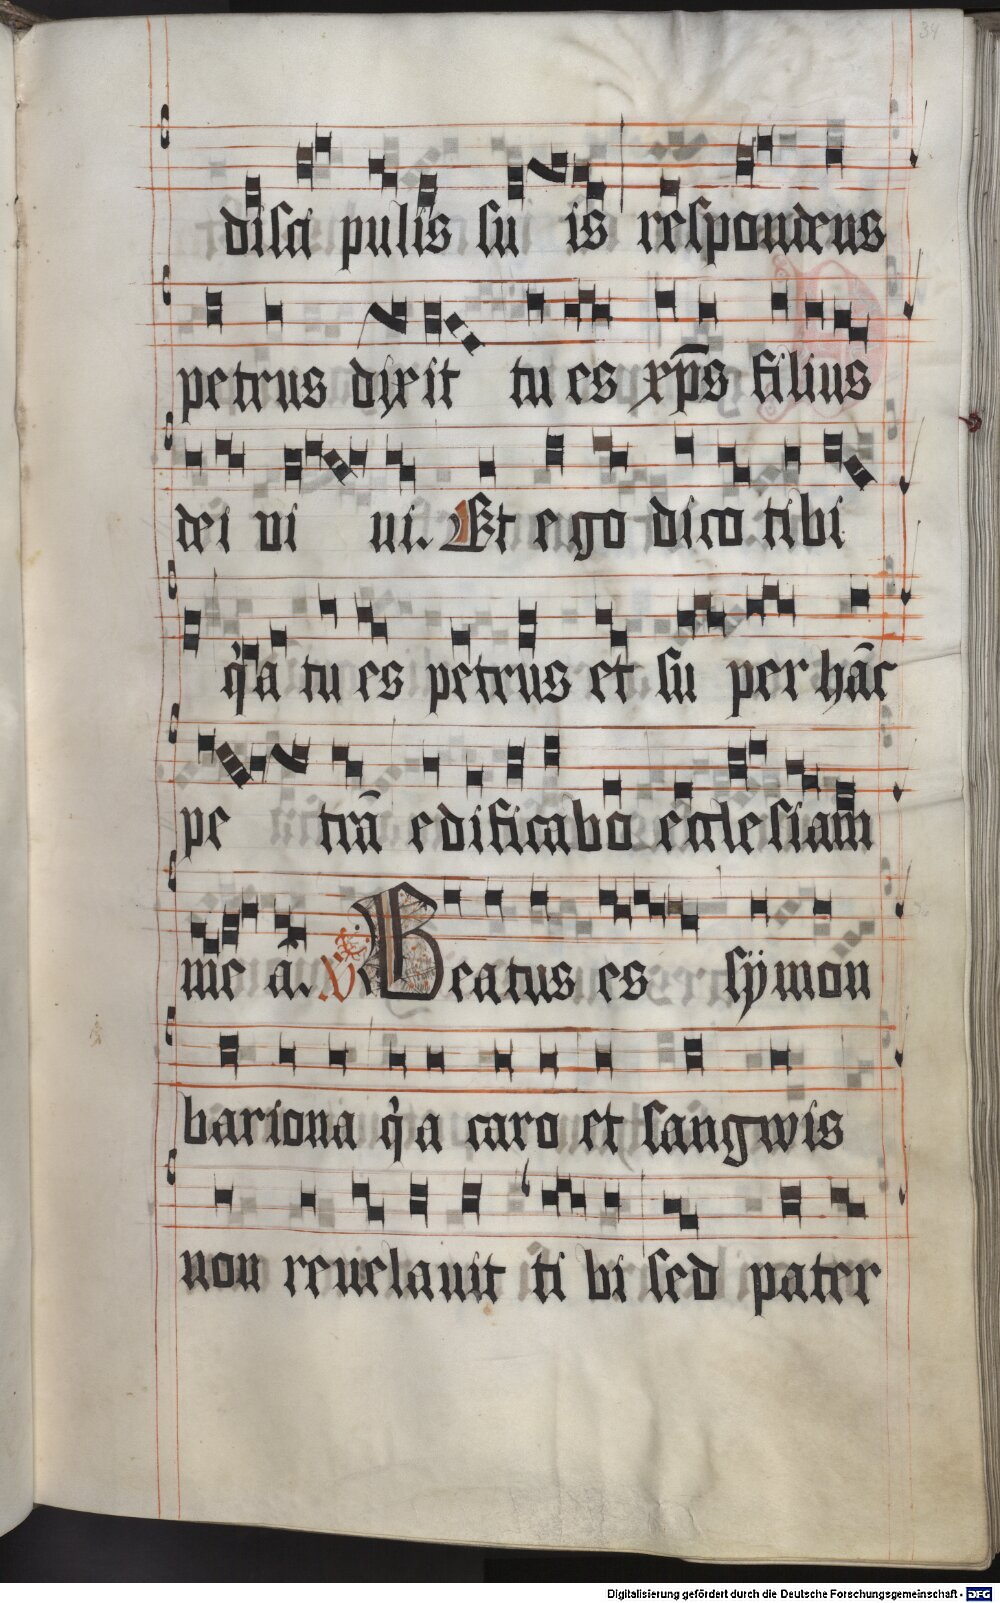 34
disci pulis su is respondens
petrus dixit tu es xp̄s filius
dei vi ui. Et ego dico tibi
q'a tu es petrus et su per hāc
pe trā edificabo ecclesiam
me ā. V Beatus es sÿmon
bariona q'a caro et sangwis
non reuelauit ti bi sed pater
Digitalisierung gefördert durch die Deutsche Forschungsgemeinschaft - DFG